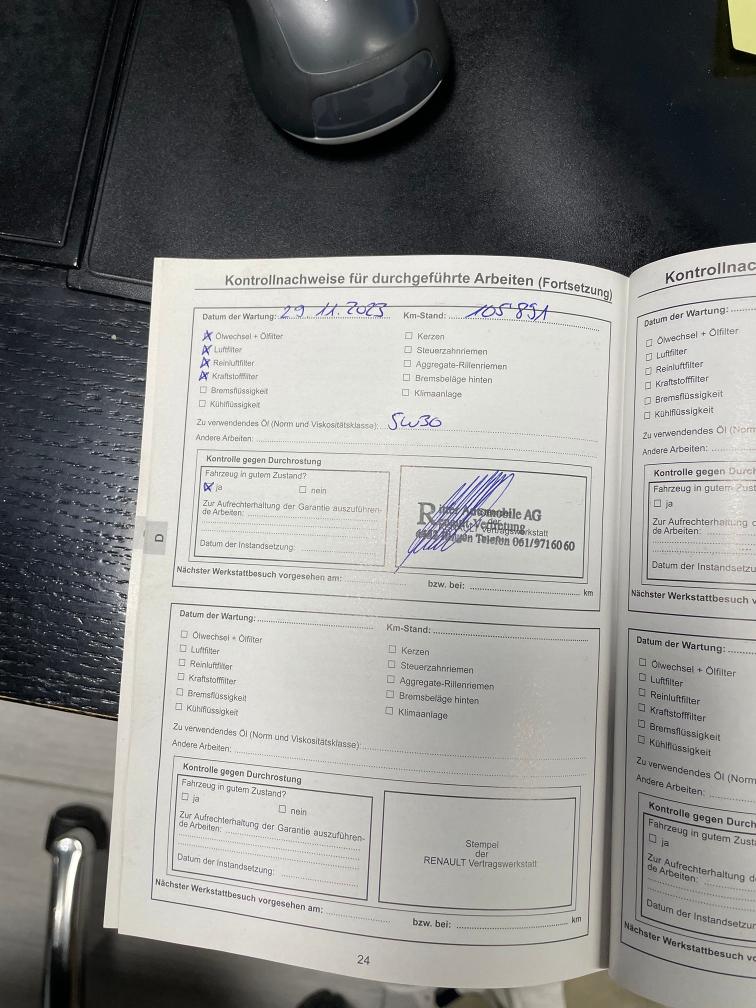 Kontrollnachweise für durchgeführte Arbeiten (Fortsetzung)
Datum der Wartung: 29 11.2023 Km-Stand: 105'891
Ölwechsel + Ölfilter
Luftfilter
Reinluftfilter
Kraftstofffilter
Bremsflüssigkeit
Kühlflüssigkeit
Kerzen
Steuerzahnriemen
Aggregate-Rillenriemen
Bremsbeläge hinten
Klimaanlage
Zu verwendendes Öl (Norm und Viskositätsklasse): 5W30
Andere Arbeiten:
Kontrolle gegen Durchrostung
Fahrzeug in gutem Zustand?
ja nein
Zur Aufrechterhaltung der Garantie auszuführen-
de Arbeiten:
Datum der Instandsetzung:
Automobile AG
Vertretung
Vertragswerkstatt
Telefon 061/9716060
Nächster Werkstattbesuch vorgesehen am: bzw. bei: km
D
Datum der Wartung: Km-Stand:
Ölwechsel + Ölfilter
Luftfilter
Reinluftfilter
Kraftstofffilter
Bremsflüssigkeit
Kühlflüssigkeit
Kerzen
Steuerzahnriemen
Aggregate-Rillenriemen
Bremsbeläge hinten
Klimaanlage
Zu verwendendes Öl (Norm und Viskositätsklasse):
Andere Arbeiten:
Kontrolle gegen Durchrostung
Fahrzeug in gutem Zustand?
ja nein
Zur Aufrechterhaltung der Garantie auszuführen-
de Arbeiten:
Datum der Instandsetzung:
Stempel
der
RENAULT Vertragswerkstatt
Nächster Werkstattbesuch vorgesehen am: bzw. bei: km
24
Kontrollnac
Datum der Wartung:
Ölwechsel + Ölfilter
Luftfilter
Reinluftfilter
Kraftstofffilter
Bremsflüssigkeit
Kühlflüssigkeit
Zu verwendendes Öl (Norm
Andere Arbeiten:
Kontrolle gegen Durch
Fahrzeug in gutem Zust
ja
Zur Aufrechterhaltung d
de Arbeiten:
Datum der Instandsetzu
Nächster Werkstattbesuch v
Datum der Wartung:
Ölwechsel + Ölfilter
Luftfilter
Reinluftfilter
Kraftstofffilter
Bremsflüssigkeit
Kühlflüssigkeit
Zu verwendendes Öl (Norm
Andere Arbeiten:
Kontrolle gegen Durch
Fahrzeug in gutem Zusta
ja
Zur Aufrechterhaltung de
de Arbeiten:
Datum der Instandsetzur
Nächster Werkstattbesuch vo